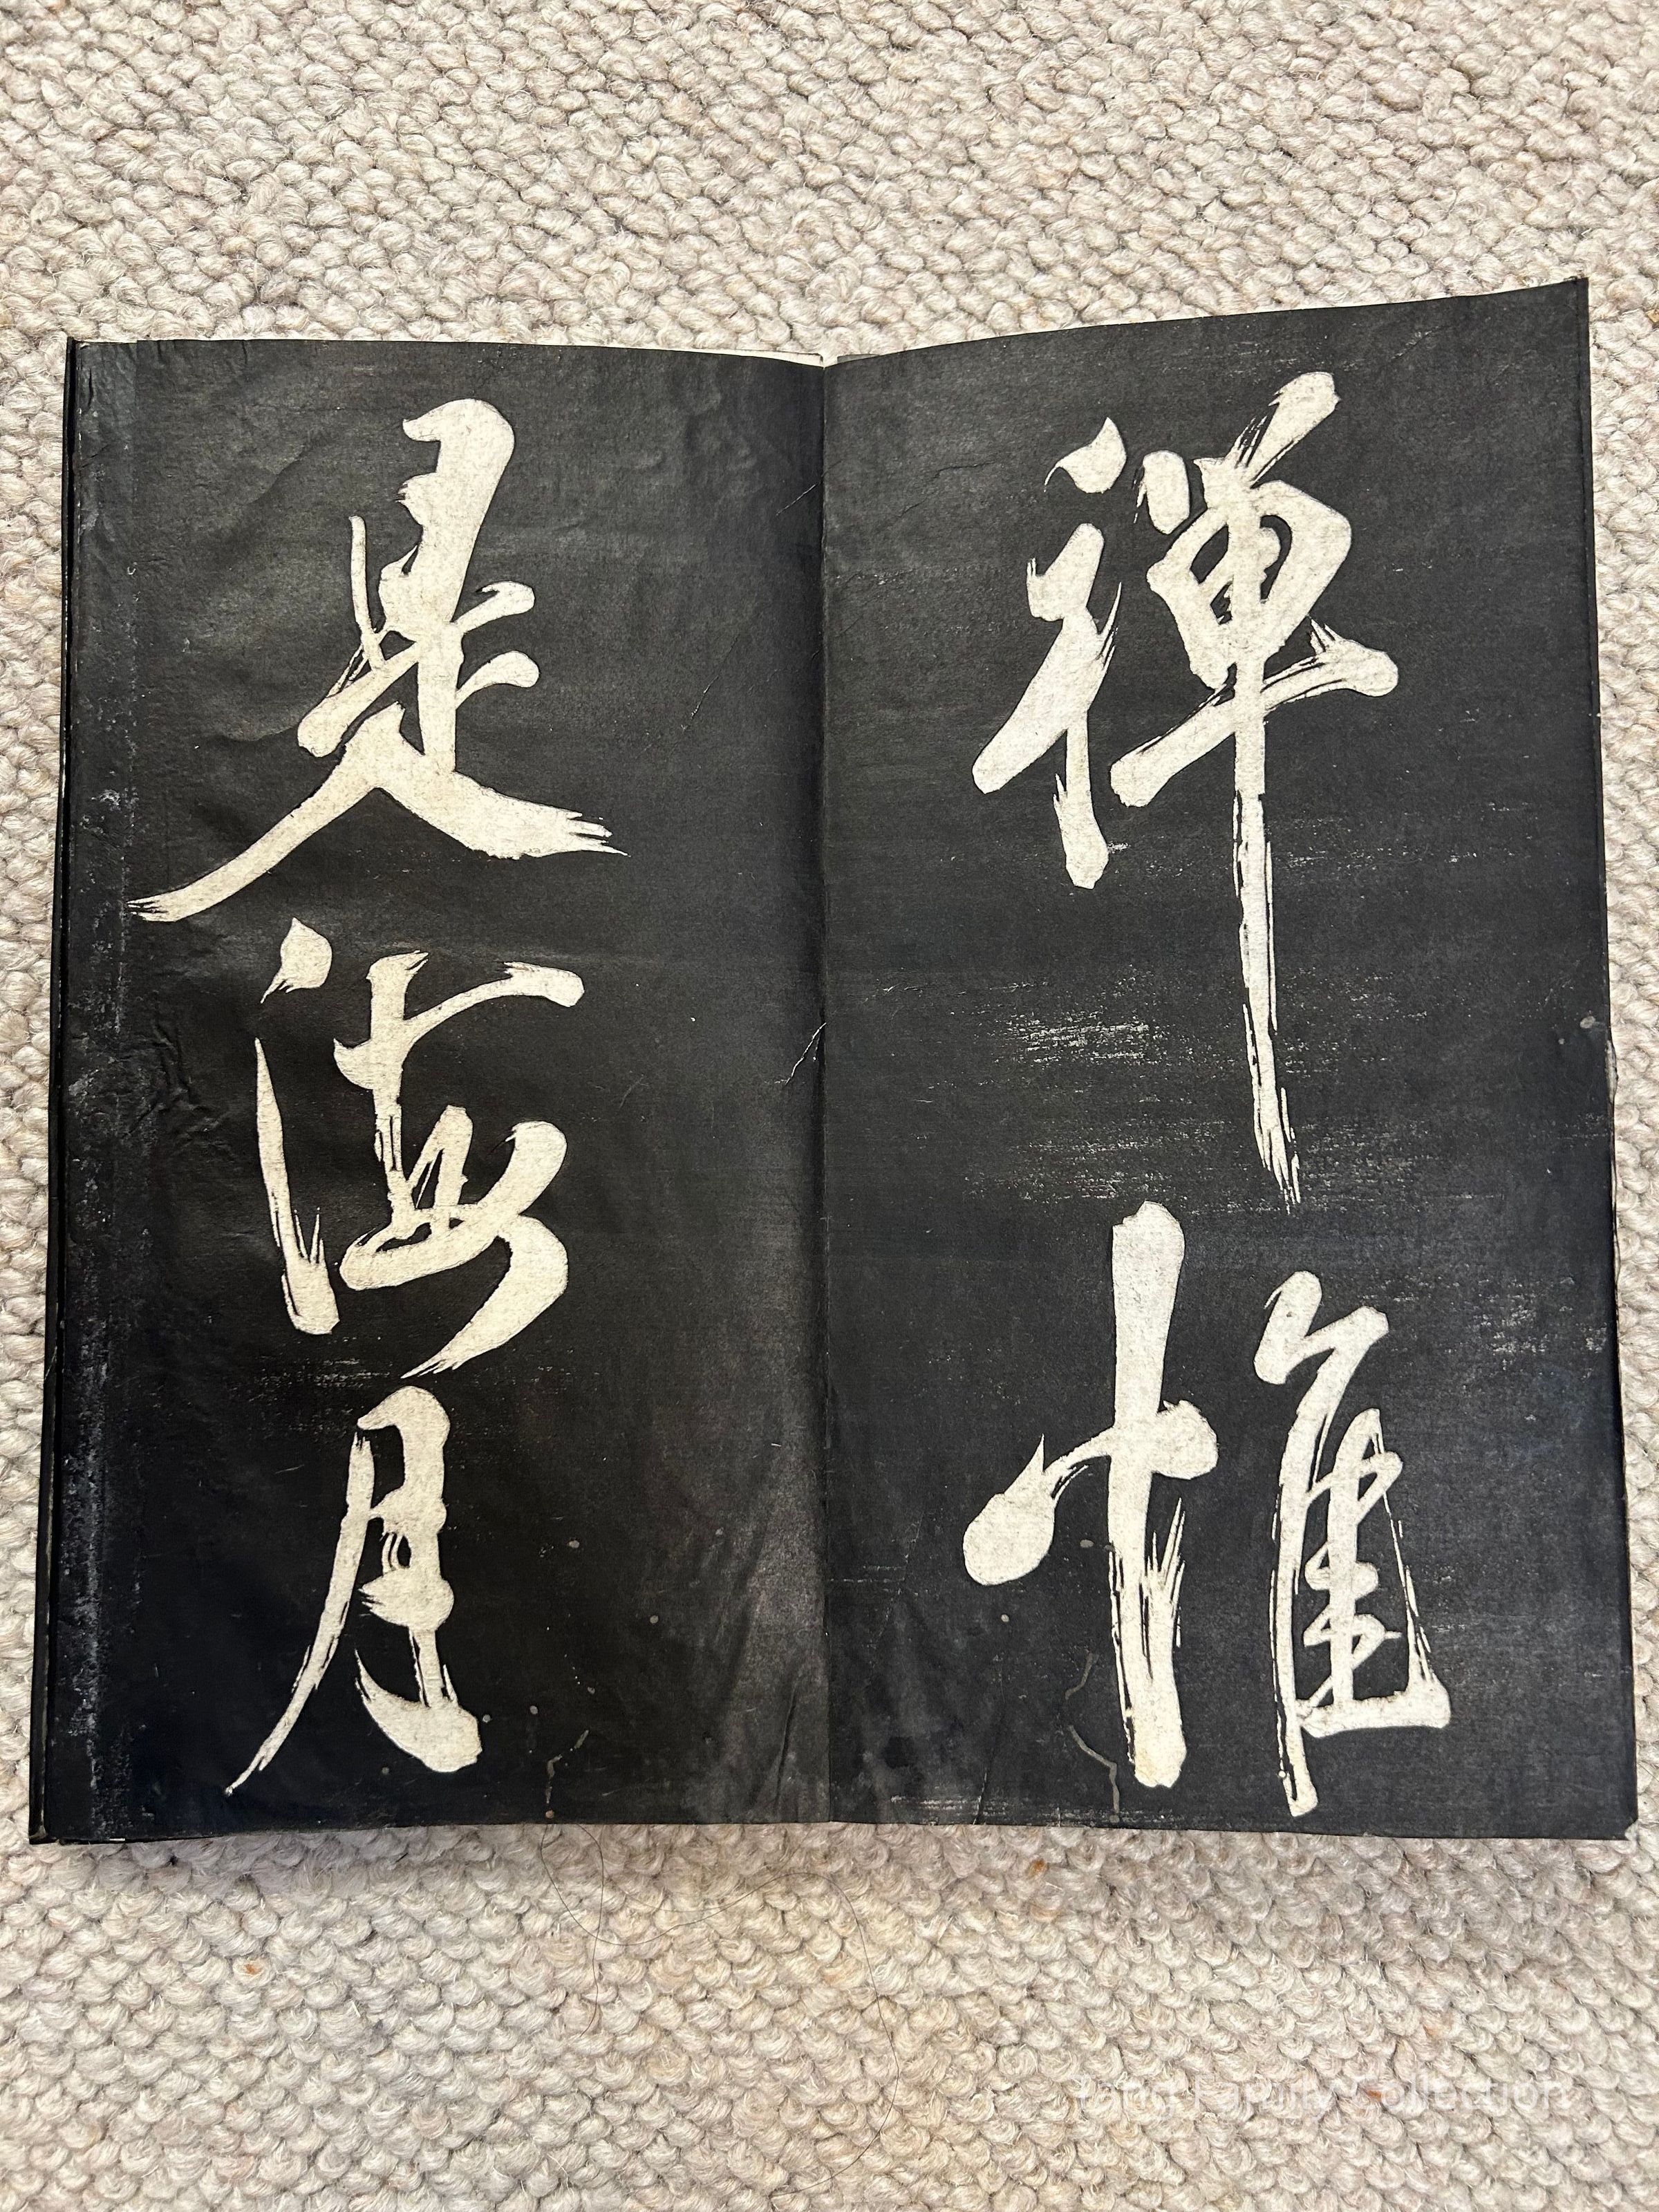 禅惟
是海月
Tang Family Collection